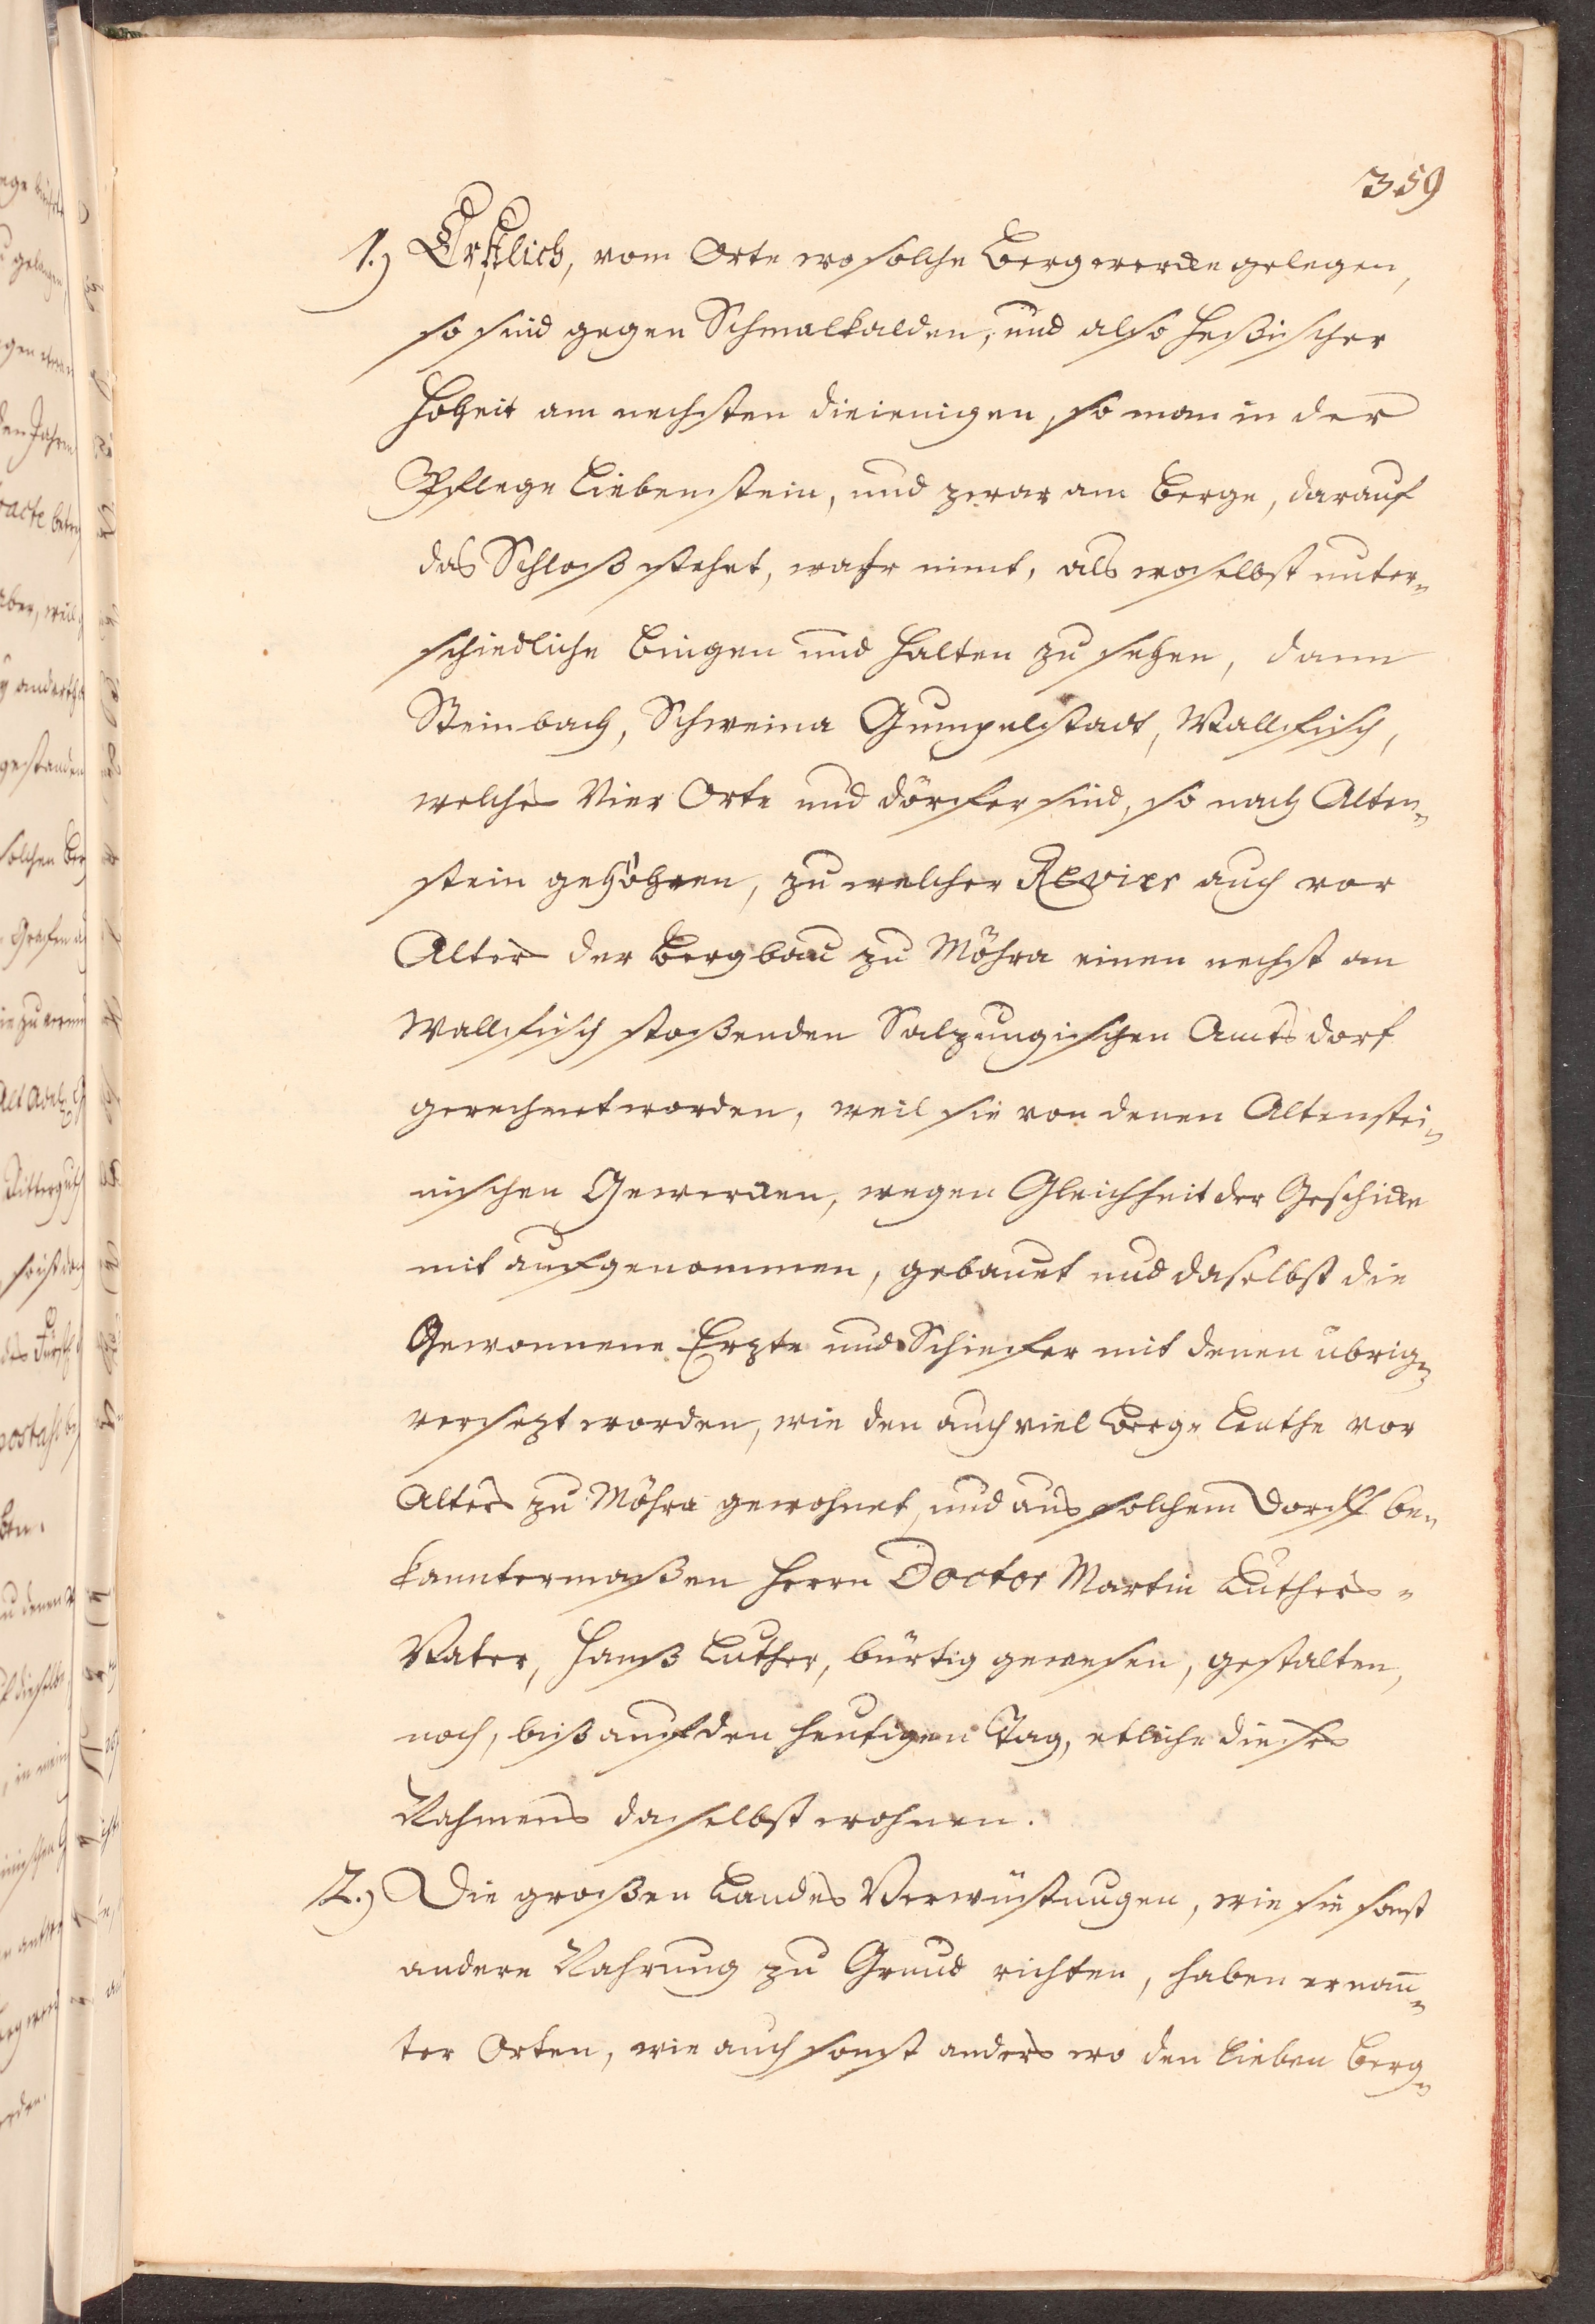 359
1.) Erstlich, vom Orte wo solche Bergwercke gelegen,
so sind gegen Schmalkalden, und also Heßischer
Hoheit am nechsten dieienigen, so man in der
Pflege Liebenstein, und zwar am Berge, darauf
das Schloß stehet, wahr nimt, als woselbst unter„
schiedliche Bingen und Halten zu sehen, dann
Steinbach, Schweina Gumpelstadt, Wallfisch,
welche Vier Orte und dörfer sind, so nach Alten„
stein gehöhren, zu welcher Revier auch vor
Alters der Bergbau zu Möhra einen nechst an
Wallfisch stoßenden Salzungischen Amts dorf
gerechnet worden, weil sie von denen Altenstei„
nischen Gewercken, wegen Gleichheit der Geschicke
mit aufgenommen, gebauet und daselbst die
Gewonnene Erzte und Schiefer mit denen übrig„
versezt worden, wie den auch viel Berg„ Leuthe vor
Alters zu Möhra gewohnet, und aus solchem Dorff be„
kanntermaßen Herrn Doctor Martin Luthers„
Vater, Hanß Luther, bürtig gewesen, gestalten,
noch, biß auf den heutigen Tag, etliche dieses
Nahmens daselbst wohnen.
2.) Die großen Landes Verwüstungen, wie sie sonst
andere Nahrung zu Grund richten, haben ernan̅„
ter Orten, wie auch sonst anders wo den lieben Berg„